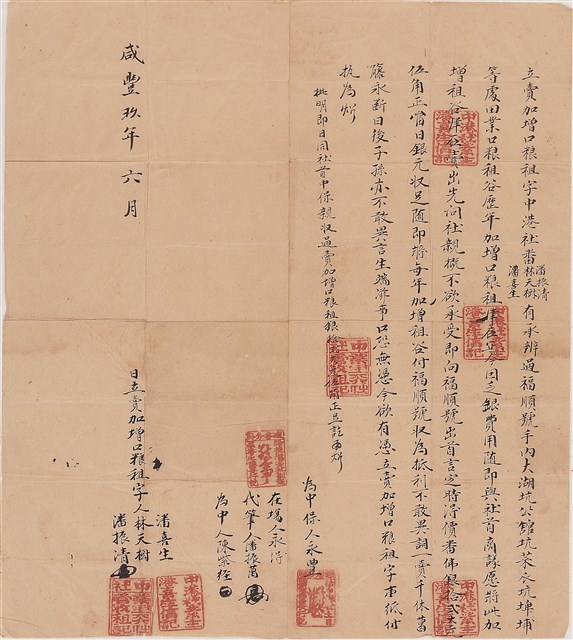 立賣加增口粮租字中港社番潘振清林天樹潘喜生有承辨過福順號手內大湖坑公館坑菜瓜坑埤埔
等處田業口粮租谷歷年加增口粮租今因乏銀費用隨即與社首商議愿將此加
增租谷賣出先問社親概不欲承受即向福順號出首言定時淂價番佛銀拾
伍角正當日銀元收足隨即將每年加增租谷付福順號收為抵利不敢異詞一賣千休葛
藤永断日後子孫亦不敢異言生端滋事口恐無憑今欲有憑立賣加增口粮租字壹紙付
执為炤
批明即日同社首中保親收過賣加增口粮租銀正足訖再炤
為中保人永豐
在塲人永淂
代筆人潘振萬
為中人陳
咸豐玖年六月
日立賣加增口粮租字人林天樹
潘喜生
潘振清